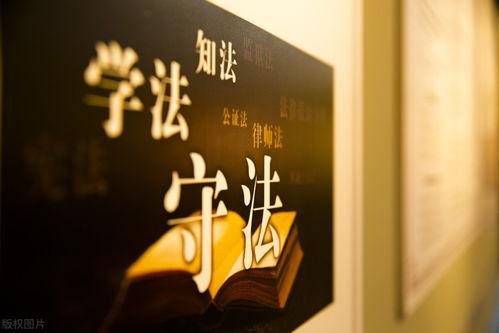 知法
监狱法
学法
公证法
律师法
宪法
守法
版权图片